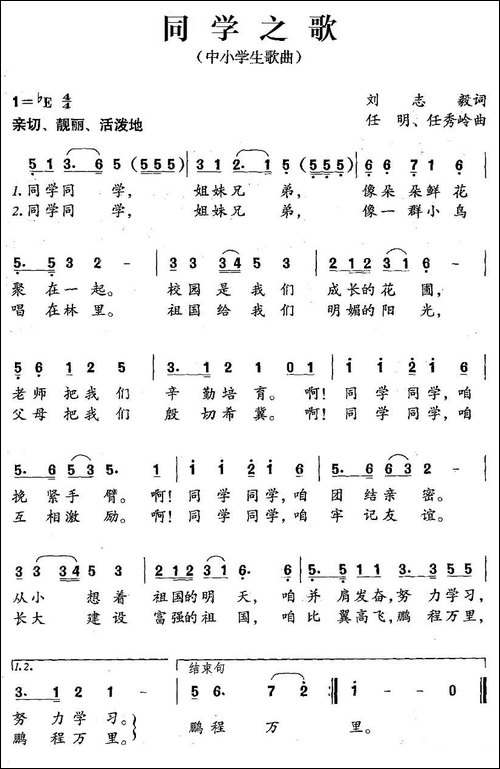 同学之歌
（中小学生歌曲）
1=♭E 4/4
刘志毅词
亲切、靓丽、活泼地
任明、任秀岭曲
5 1 3. 6 5 (555 555) | 3 1 2. 1 5 (555 555) | 6 6 7 1 6
1.同学同学， 姐妹兄弟， 像朵朵鲜花
2.同学同学， 姐妹兄弟， 像一群小鸟
5. 5 3 2 - | 3 3 3 3 4 5 3 | 2 1 2 3 2 -
聚在一起。 校园是我们 成长的花圃，
唱在林里。 祖国给我们 明媚的阳光，
5 6 1 2 5 | 3. 1 2 1 0 1 | i i 2 i 6
老师把我们 辛勤培育。啊！同学同学，咱
父母把我们 殷切希冀。啊！同学同学，咱
5. 6 5 3 5. 1 | i i 2 i 6 | 5. 2 6 3 -
挽紧手臂。啊！同学同学，咱 团结亲密。
互相激励。啊！同学同学，咱 牢记友谊。
3 3 3 4 5 3 | 2 1 2 3 2 1 6 | 5. 5 1 1 3. 5 5 5
从小想着 祖国的明天， 咱并肩发奋，努力学习，
长大建设 富强的祖国， 咱比翼高飞，鹏程万里，
1.2. 结束句
3. 1 2 1 :| 5 6. 7 2 :| 1 - - 0 ‖
努力学习。
鹏程万里。 鹏程万里。